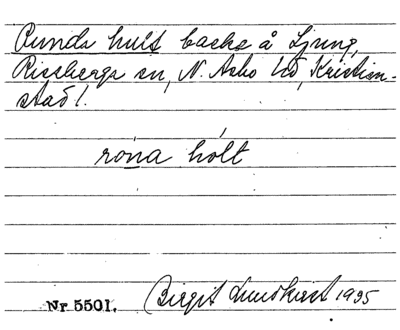 Runda hult backe å Ljung,
Riseberga sn, N. Åsbo hd, Kristian-
stad l.
róna hólt
Nr 5501. Birgit Lundkvist 1935